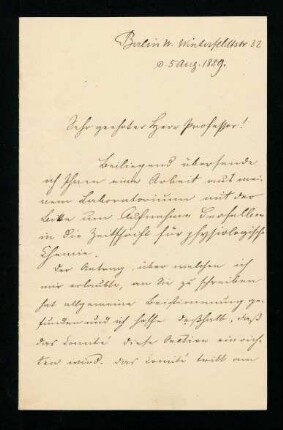 Berlin W. Winterfeldtstr 32
d 5 Aug. 1889.
Sehr geehrter Herr Professor!
Beiliegend übersende
ich Ihnen eine Arbeit aus mei
nem Laboratorium mit der
Bitte um Aufnahme derselben
in die Zeitschrift für physiologische
Chemie.
Der Antrag, über welchen ich
mir erlaubte, an Sie zu schreiben
hat allgemeine Beistimmung ge
funden und ich hoffe deßhalb, daß
das Comité diese Section einrich-
ten wird. Das Comité tritt am